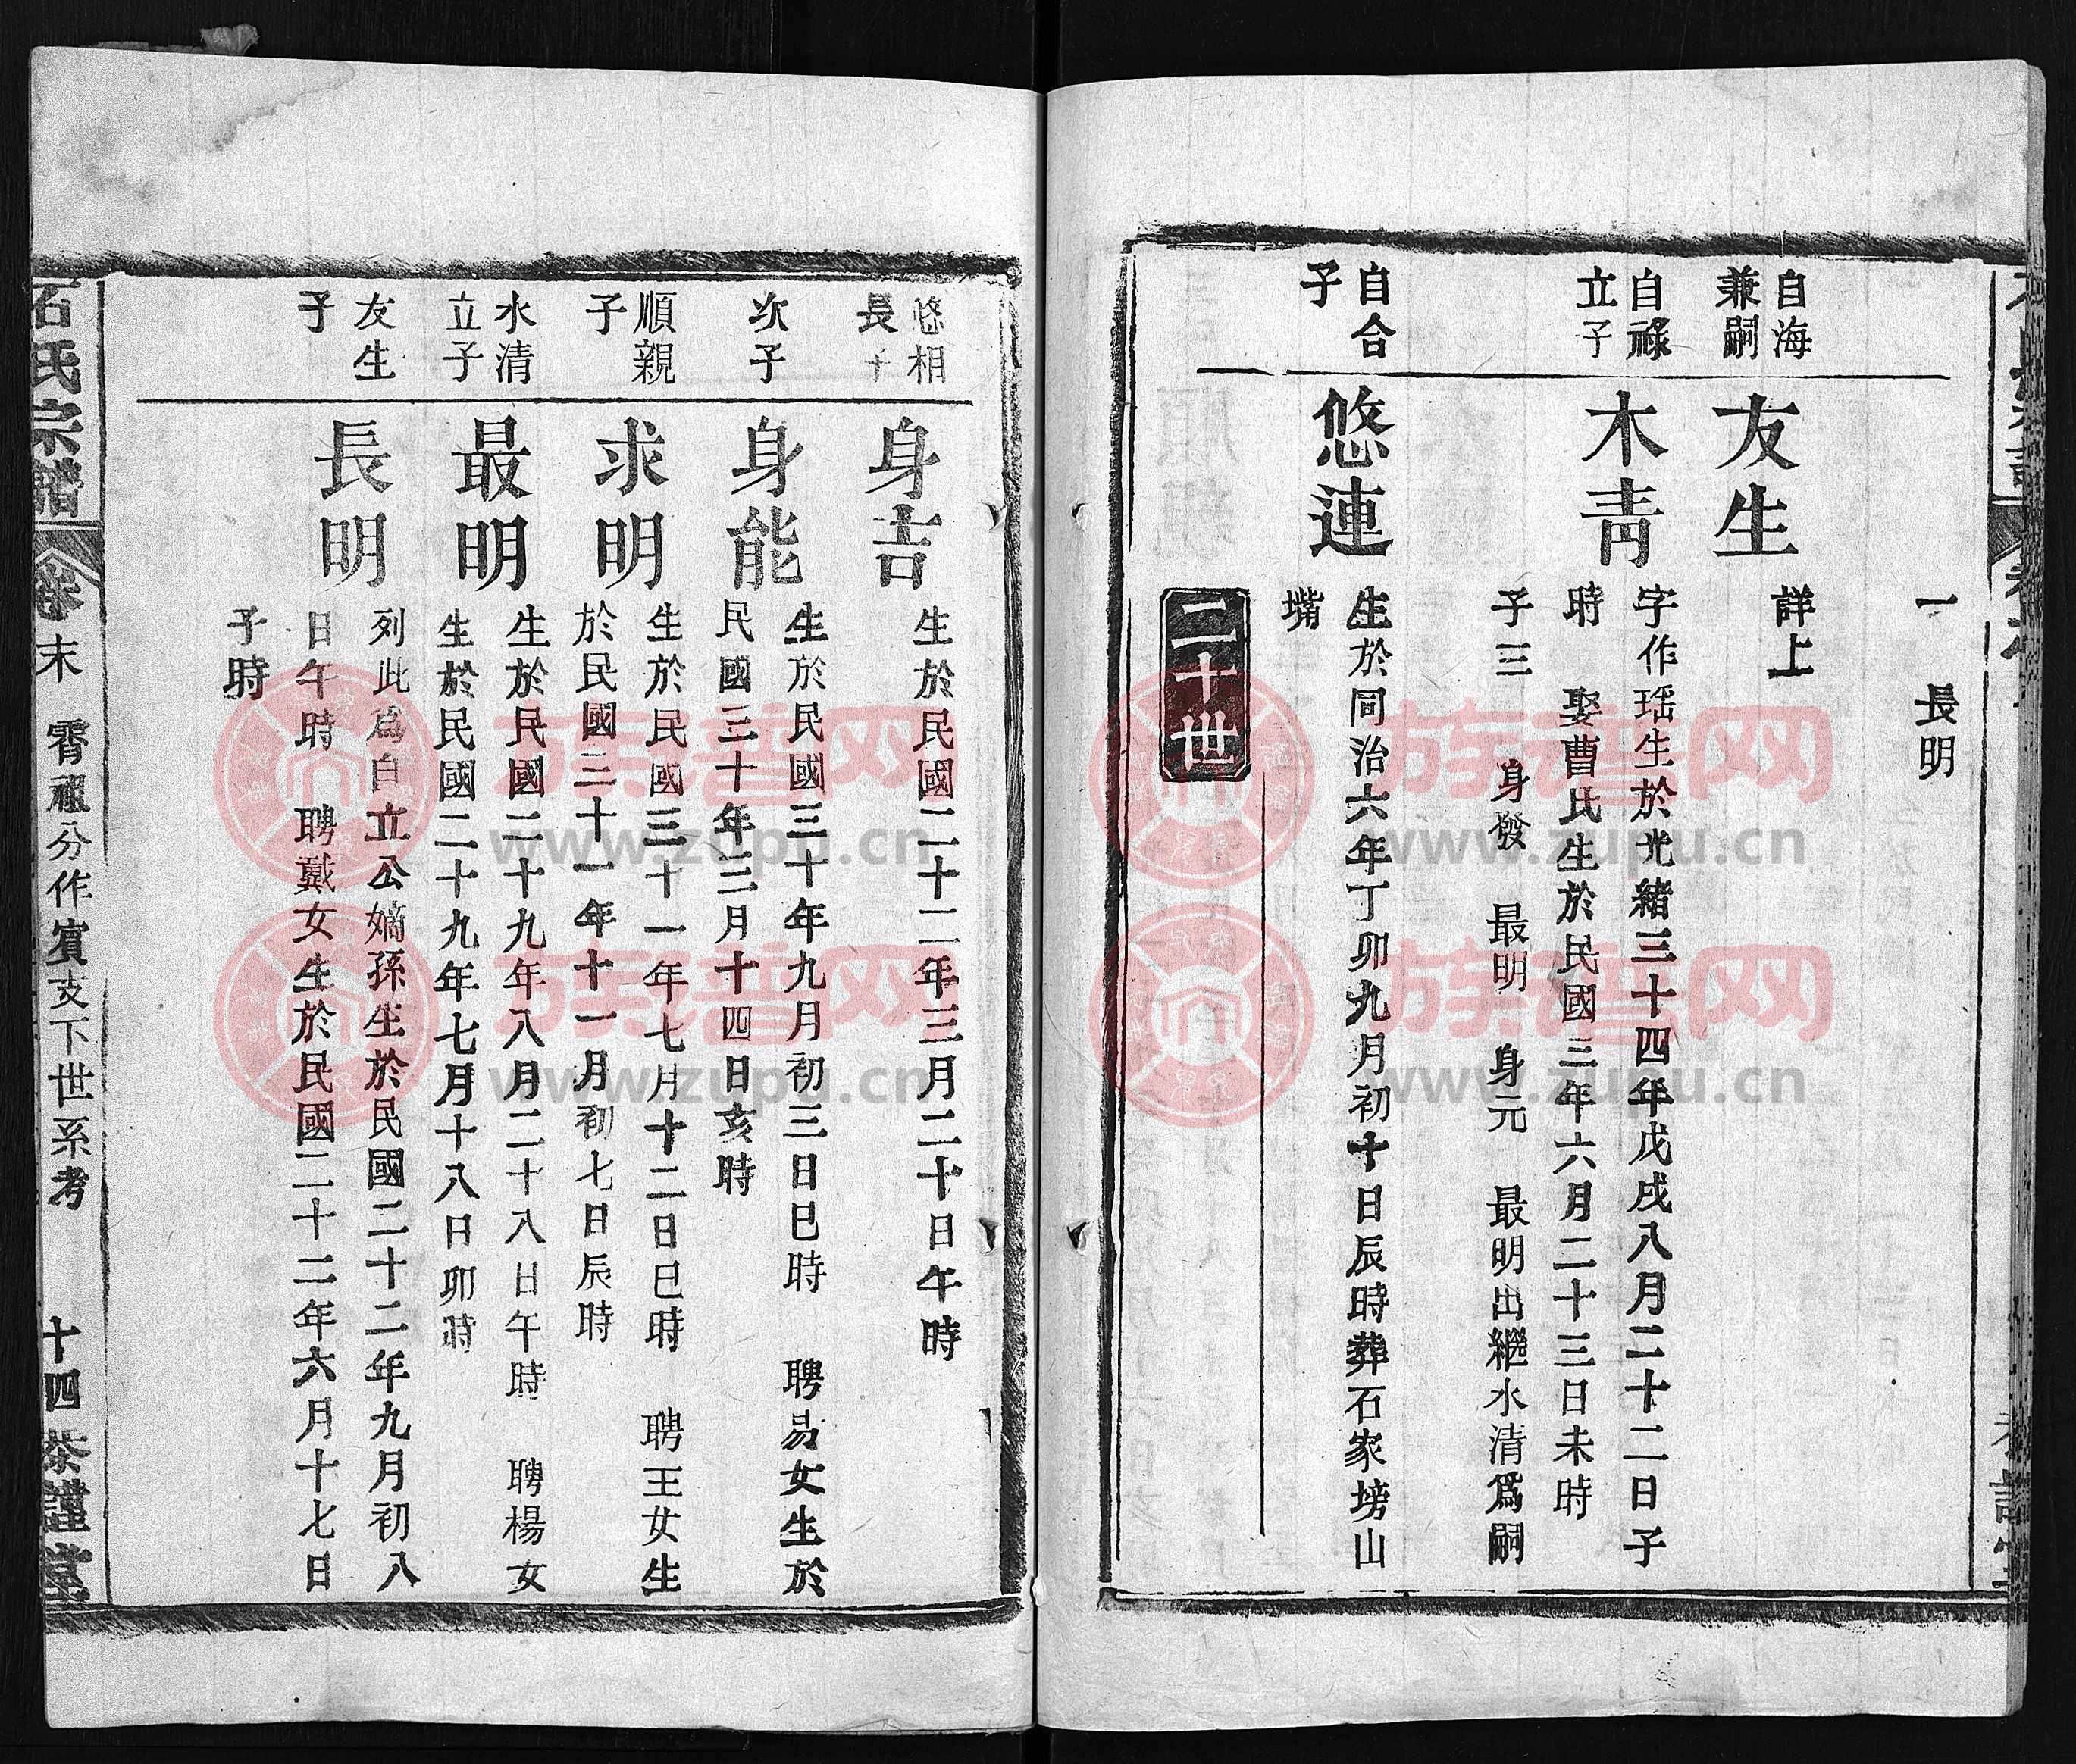 一　長明
自海
兼嗣
友生
詳上
自祿
立子
木青
字作瑤生於光緒三十四年戊戌八月二十二日子
時　娶曹氏生於民國三年六月二十三日未時
子三　身發　最明　身元　最明出繼水清爲嗣
自合
子
悠連
生於同治六年丁卯九月初十日辰時葬石家塝山
嘴
二十世
悠相
長子
身吉
生於民國二十二年三月二十日午時
次子
身能
生於民國三十年九月初三日巳時　聘易女生於
民國三十年三月十四日亥時
順親
子
求明
生於民國三十一年七月十二日巳時　聘王女生
於民國三十一年十一月初七日辰時
水清
立子
最明
生於民國二十九年八月二十八日午時　聘楊女
生於民國二十九年七月十八日卯時
友生
子
長明
列此爲自立公嫡孫生於民國二十二年九月初八
日午時　聘戴女生於民國二十二年六月十七日
子時
石氏宗譜
卷末　霄祖分作賓支下世系考　十四
族譜网
www.zupu.cn
族譜网
www.zupu.cn
族譜网
www.zupu.cn
族譜网
www.zupu.cn